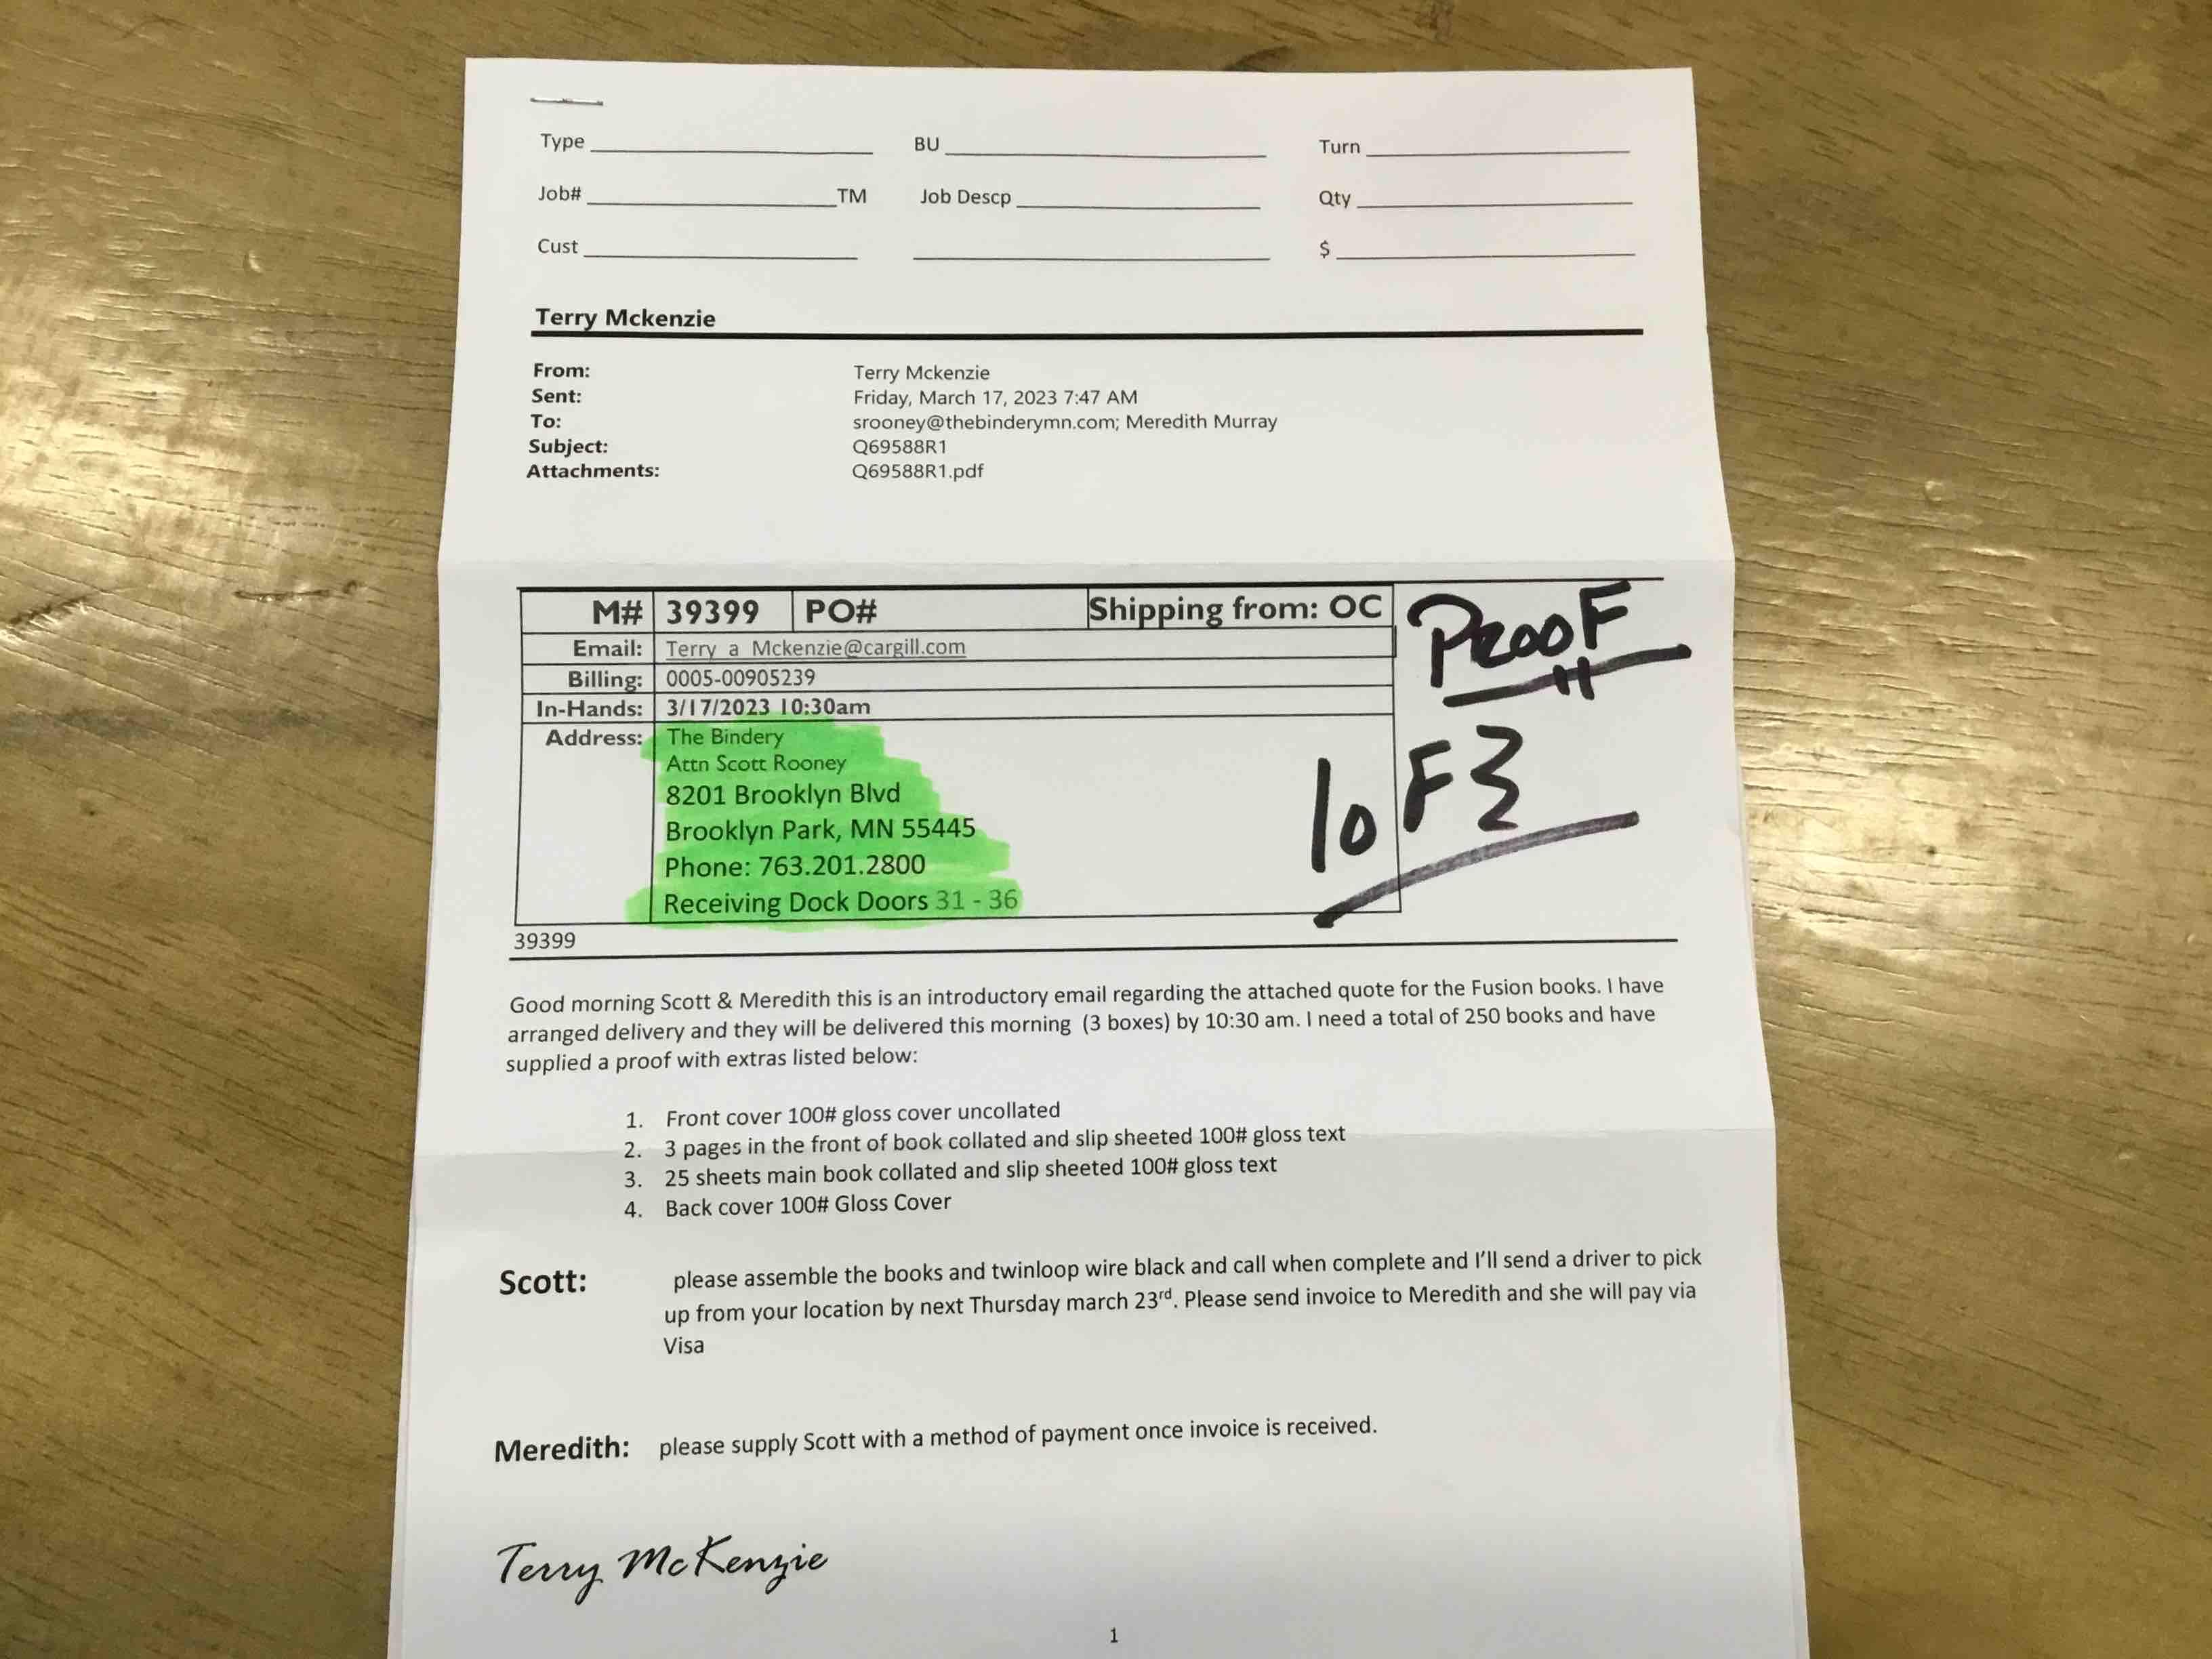 Type BU Turn
Job# TM Job Descp Qty
Cust $
Terry Mckenzie
From: Terry Mckenzie
Sent: Friday, March 17, 2023 7:47 AM
To: srooney@thebinderymn.com; Meredith Murray
Subject: Q69588R1
Attachments: Q69588R1.pdf
M# 39399 PO# Shipping from: OC
Email: Terry_a_Mckenzie@cargill.com
Billing: 0005-00905239
In-Hands: 3/17/2023 10:30am
Address: The Bindery
Attn Scott Rooney
8201 Brooklyn Blvd
Brooklyn Park, MN 55445
Phone: 763.201.2800
Receiving Dock Doors 31 - 36
39399
Proof
1 oF 3
Good morning Scott & Meredith this is an introductory email regarding the attached quote for the Fusion books. I have
arranged delivery and they will be delivered this morning (3 boxes) by 10:30 am. I need a total of 250 books and have
supplied a proof with extras listed below:
1. Front cover 100# gloss cover uncollated
2. 3 pages in the front of book collated and slip sheeted 100# gloss text
3. 25 sheets main book collated and slip sheeted 100# gloss text
4. Back cover 100# Gloss Cover
Scott: please assemble the books and twinloop wire black and call when complete and I'll send a driver to pick
up from your location by next Thursday march 23rd. Please send invoice to Meredith and she will pay via
Visa
Meredith: please supply Scott with a method of payment once invoice is received.
Terry McKenzie
1